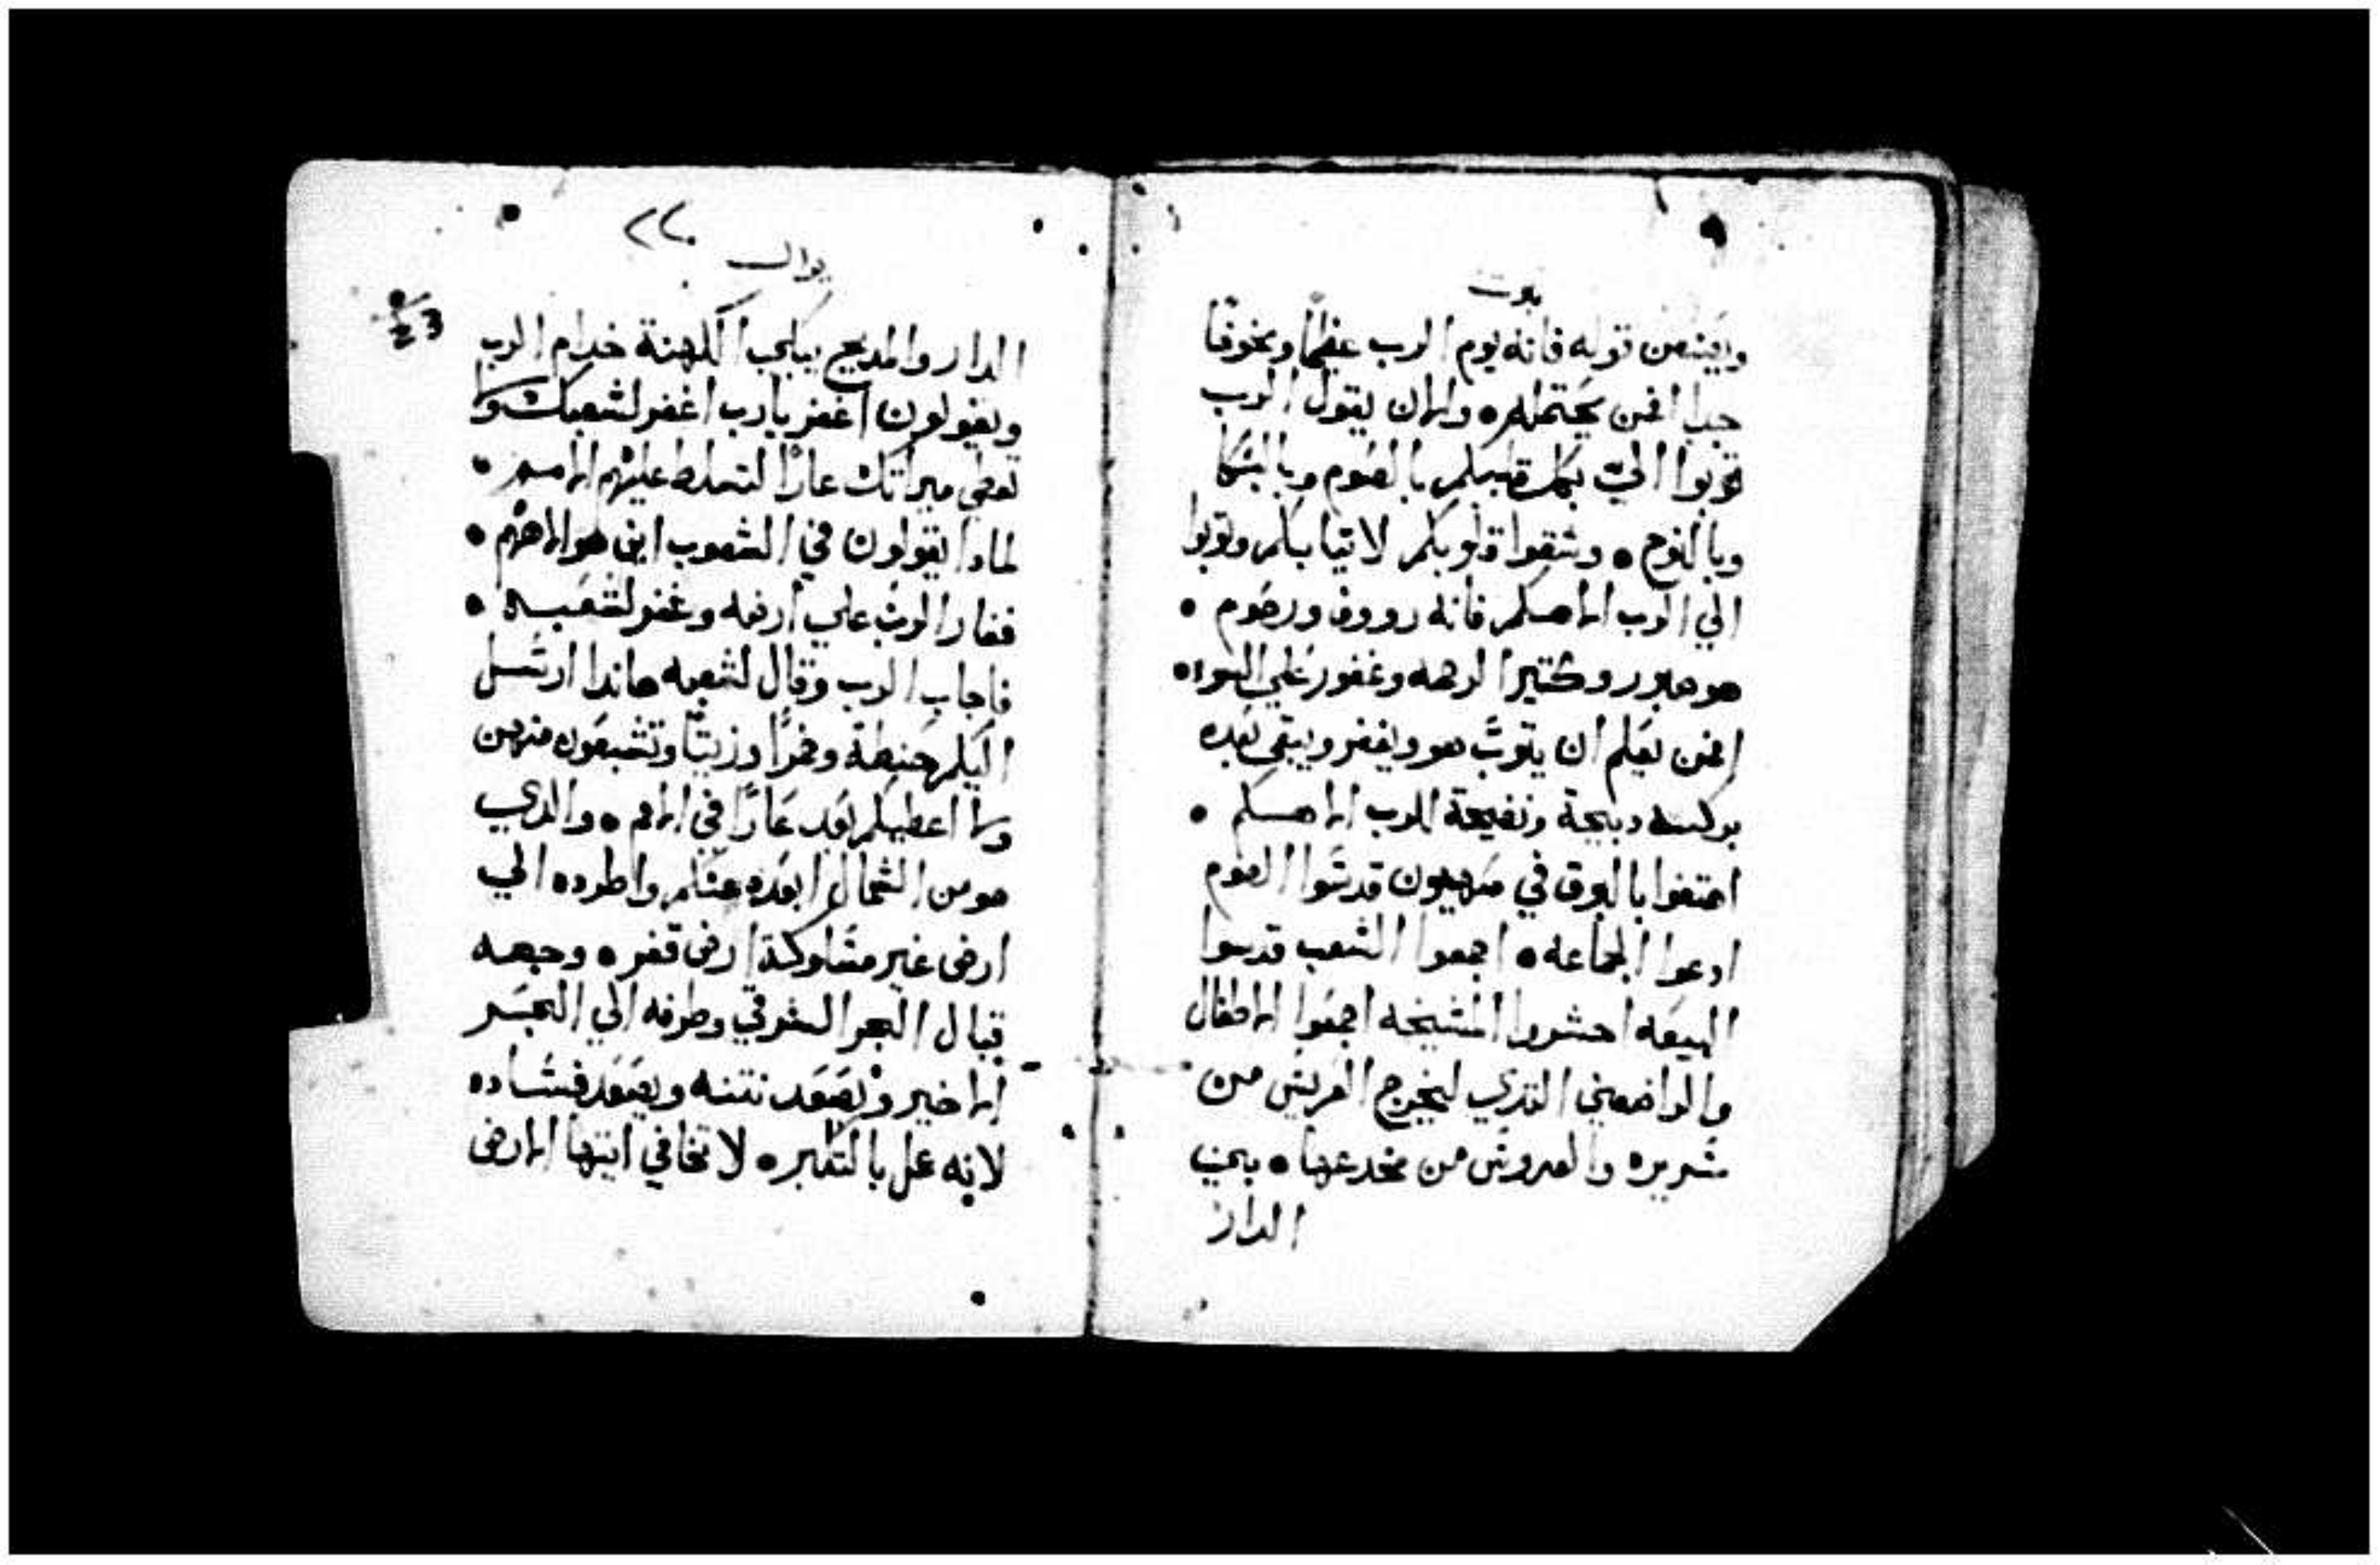 نبوت
وبعيد من قوله فانه يوم الرب عظيمًا ومخوفًا
جدا فمن يحتمله ٠ والان يقول الرب
توبوا اليّ بكل قلبكم بالصوم وبالبكا
وبالنوح ٠ وشقوا قلوبكم لا ثيابكم وتوبوا
الي الرب الاهكم فانه رووف ورحوم ٠
هو صابور وكتير الرحمه وغفور علي السواه
فمن يعلم ان يتوب هو ويغفر ويبقي بعده
بركته دبيحة ونضيحة للرب الاهكم ٠
اهتفوا بالبوق في صهيون قدسوا الصوم
ادعوا الجماعه ٠ اجمعوا الشعب قدسوا
البيعه احشروا المشيخه اجمعوا الاطفال
والراضعين التدي ليخرج العريس من
سريره والعروس من مخدعها ٠ بين
الدار
٢٢٠
يوال
الدار والمدبح يبكي الكهنة خدام الرب
ويقولون اغفر يارب اغفر لشعبك ولا
تعطي ميراتك عارًا لتسلط عليهم الامم ٠
لمادا يقولون في الشعوب اين هو الاههم ٠
فغار الرب علي ارضه وغفر لشعبه ٠
فاجاب الرب وقال لشعبه هاندا ارسل
اليكم حنطة وخمرًا وزيتًا وتشبعون منهن
ولا اعطيكم بعد عارًا في الامم ٠ والدي
هو من الشمال ابعده عنكم واطرده الي
ارض غير مسلوكة ارض قفر ٠ وجهه
قبال البحر الشرقي وطرفه الي البحر
الاخير ويصعد نتنه ويصعد فساده
لانه عمل بالتكبر ٠ لا تخافي ايتها الارض